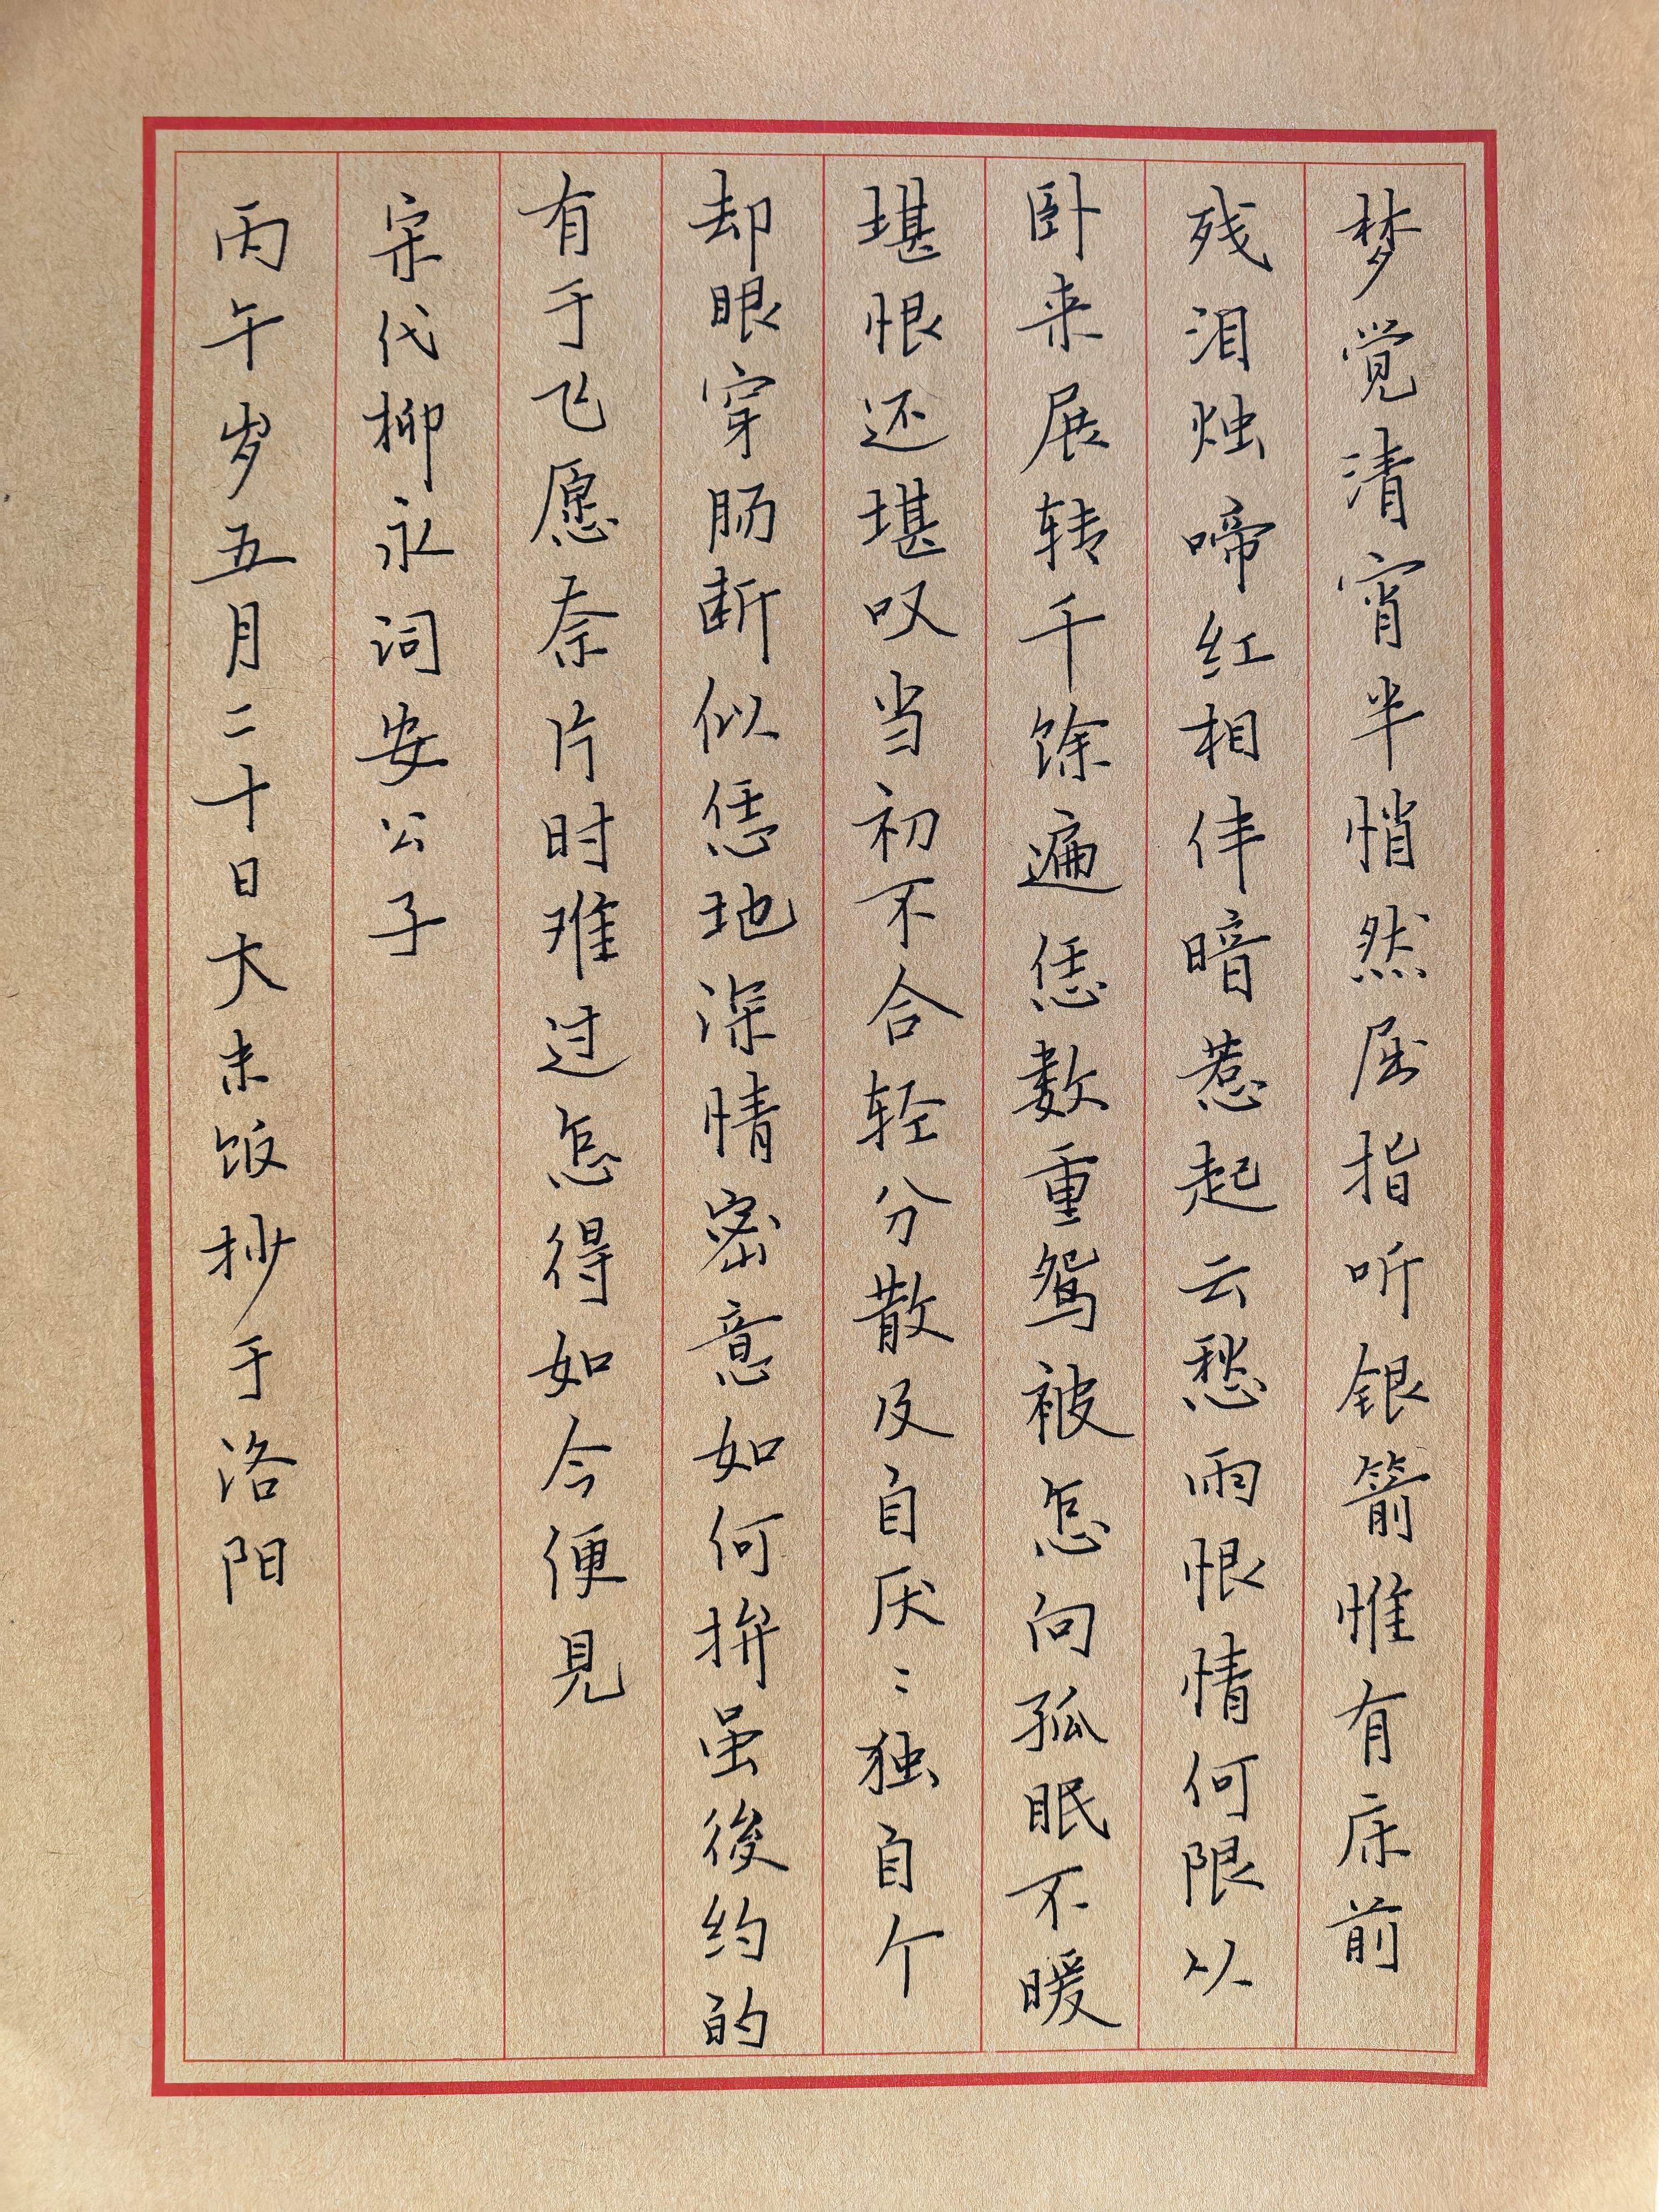 梦觉清宵半悄然屈指听银箭惟有床前
残泪烛啼红相伴暗惹起云愁雨恨情何限以
卧来展转千馀遍恁数重鸳被怎向孤眠不暖
堪恨还堪叹当初不合轻分散及自厌〻独自个
却眼穿肠断似恁地深情密意如何拚虽後约的
有于飞愿奈片时难过怎得如今便见
宋代柳永词安公子
丙午岁五月二十日大未饭抄于洛阳